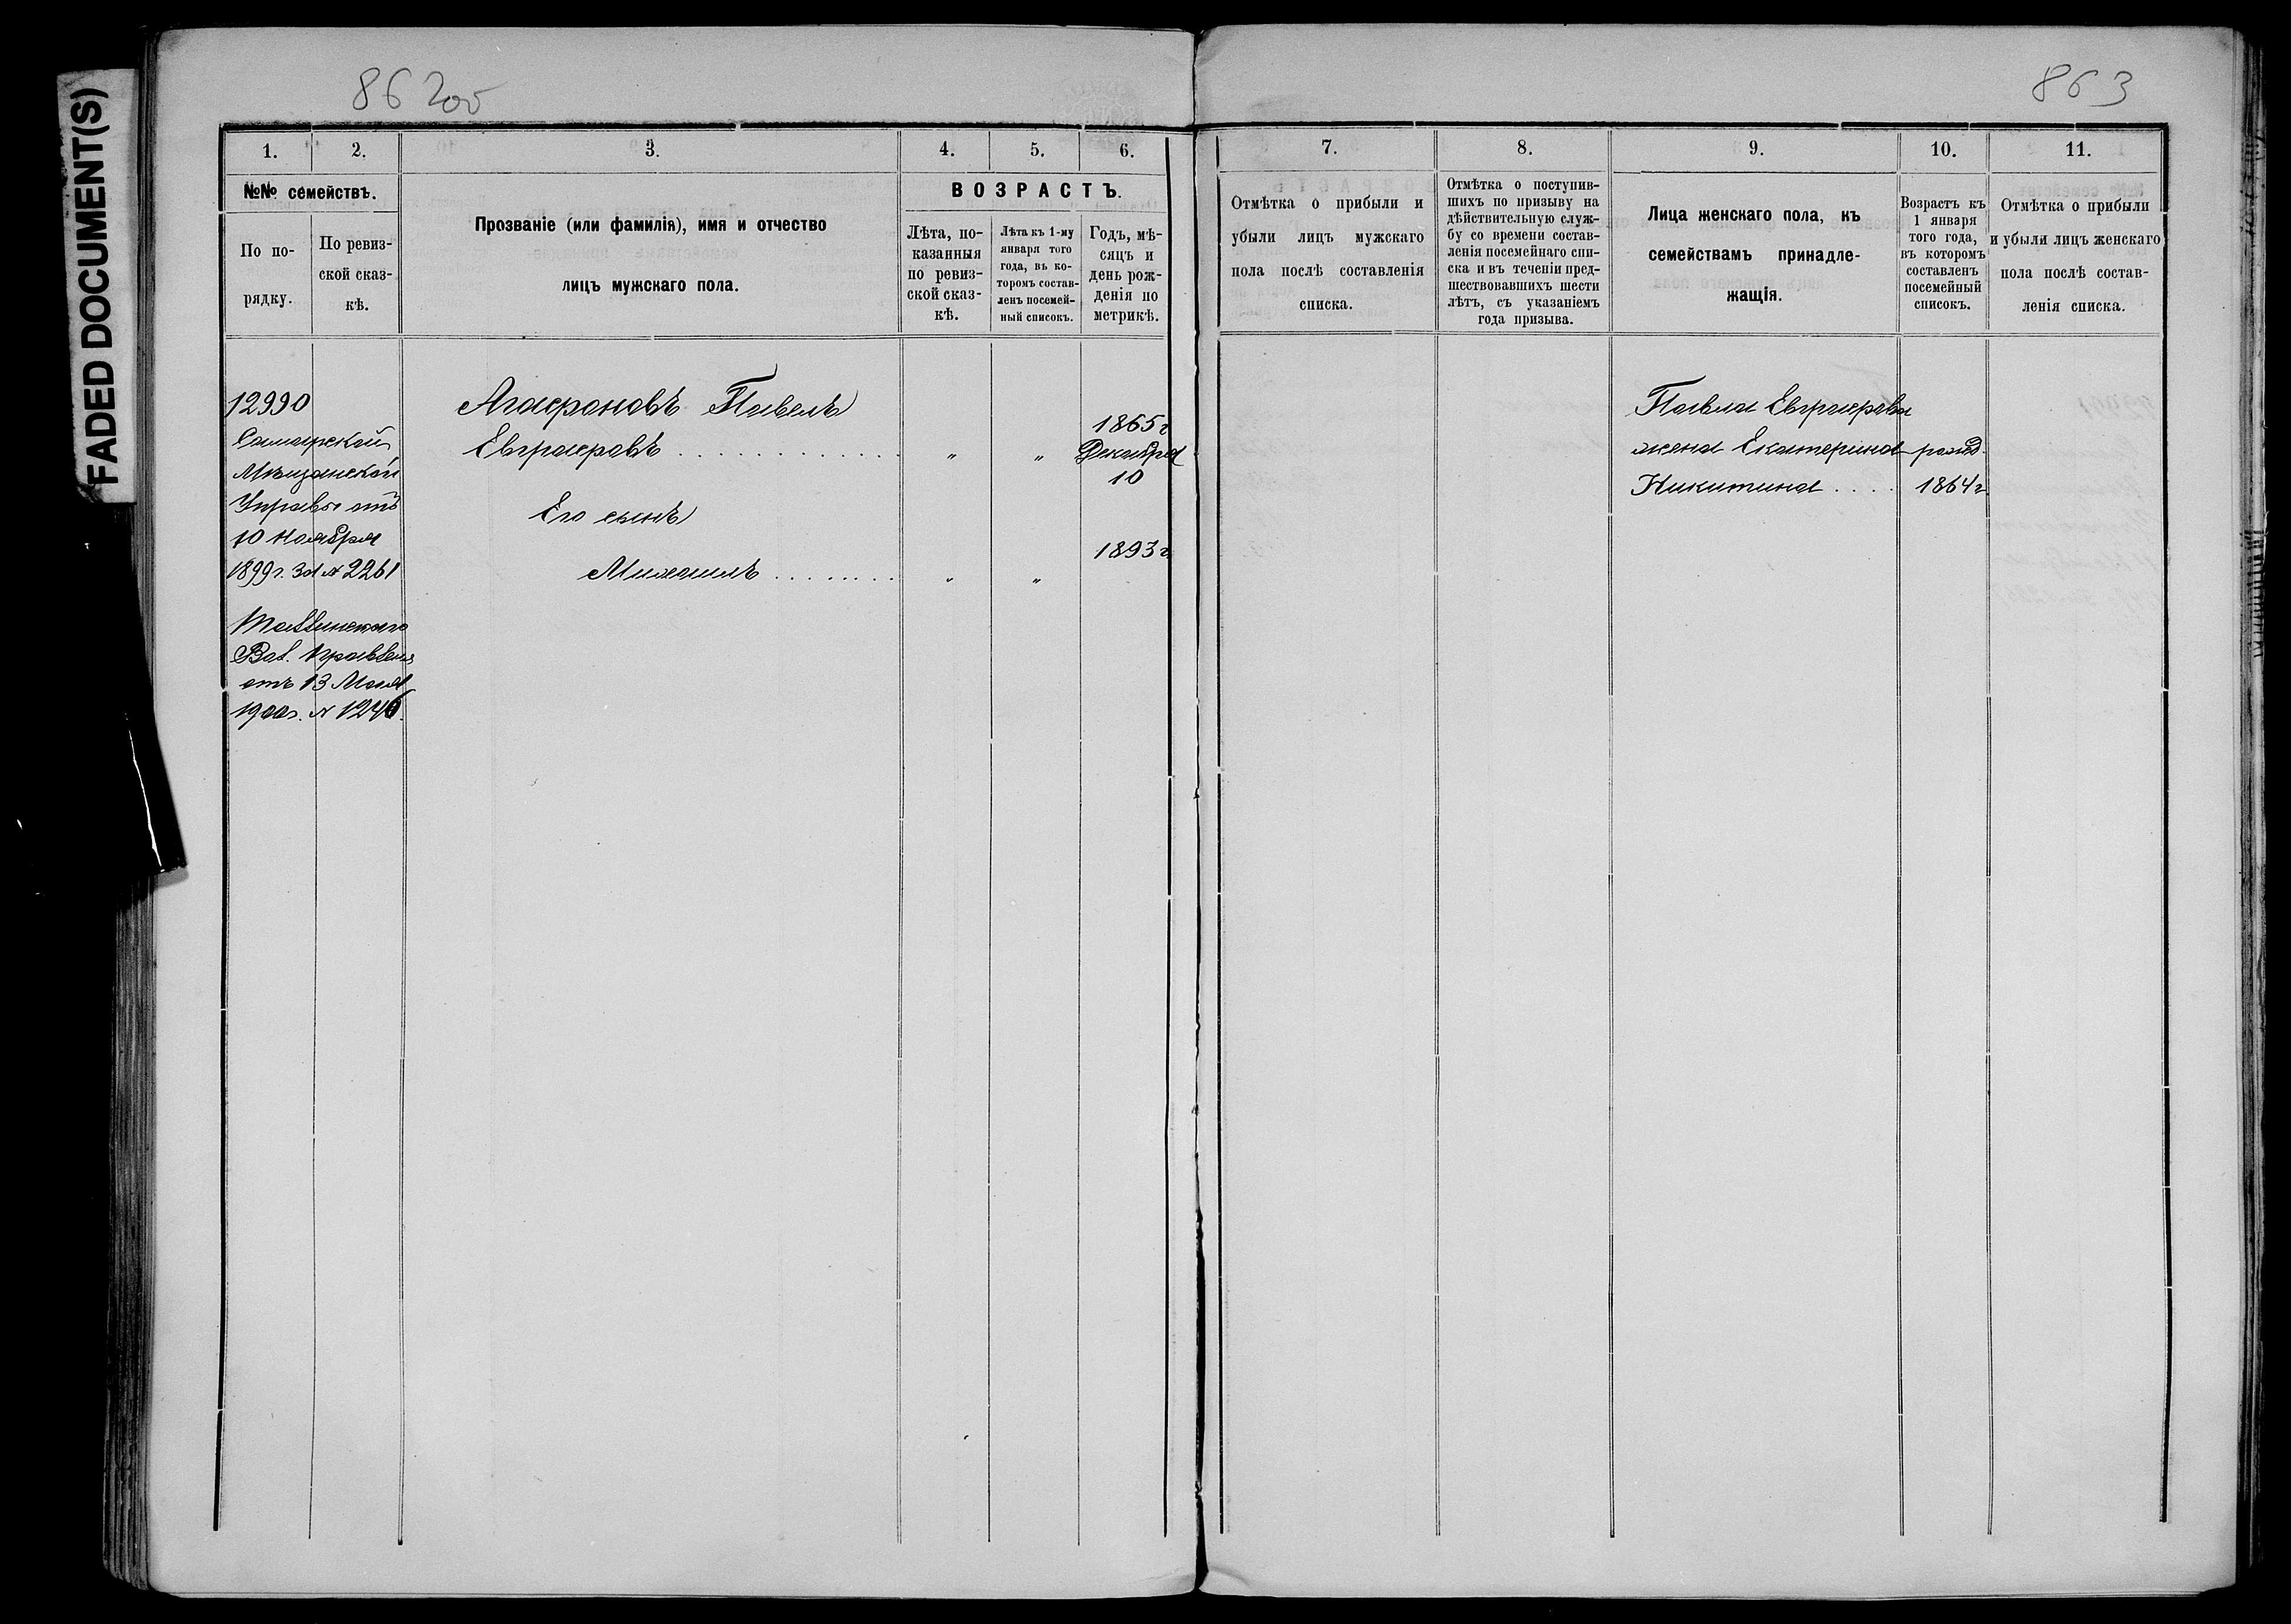 FADED DOCUMENT(S)
862об
1. 2. 3. 4. 5. 6.
№№ семействъ.
По по-
рядку.
По ревиз-
ской сказ-
кѣ.
Прозваніе (или фамилія), имя и отчество
лицъ мужскаго пола.
ВОЗРАСТЪ.
Лѣта, по-
казанныя
по ревиз-
ской сказ-
кѣ.
Лѣта къ 1-му
января того
года, въ ко-
торомъ состав-
ленъ посемей-
ный списокъ.
Годъ, мѣ-
сяцъ и
день рож-
денія по
метрикѣ.
12990
Самарской
Мѣщанской
Управы отъ
10 Ноября
1899г. за № 2261
Вол. Правленія
отъ 13 Мая
1900г. № 1246.
Агафоновъ Павелъ
Евграфовъ . . . . . . . . . . . . . „ „
1865г
Декабря
10
Его сынъ
Михаилъ . . . . . . . . „ „
1893г
863
7. 8. 9. 10. 11.
Отмѣтка о прибыли и
убыли лицъ мужскаго
пола послѣ составленія
списка.
Отмѣтка о поступив-
шихъ по призыву на
дѣйствительную служ-
бу со времени состав-
ленія посемейнаго спи-
ска и въ теченіи пред-
шествовавшихъ шести
лѣтъ, съ указаніемъ
года призыва.
Лица женскаго пола, къ
семействамъ принадле-
жащія.
Возрастъ къ
1 января
того года,
въ которомъ
составленъ
посемейный
списокъ.
Отмѣтка о прибыли
и убыли лицъ женскаго
пола послѣ состав-
ленія списка.
Павла Евграфова
жена Екатерина рожд.
Никитина . . . . 1864г